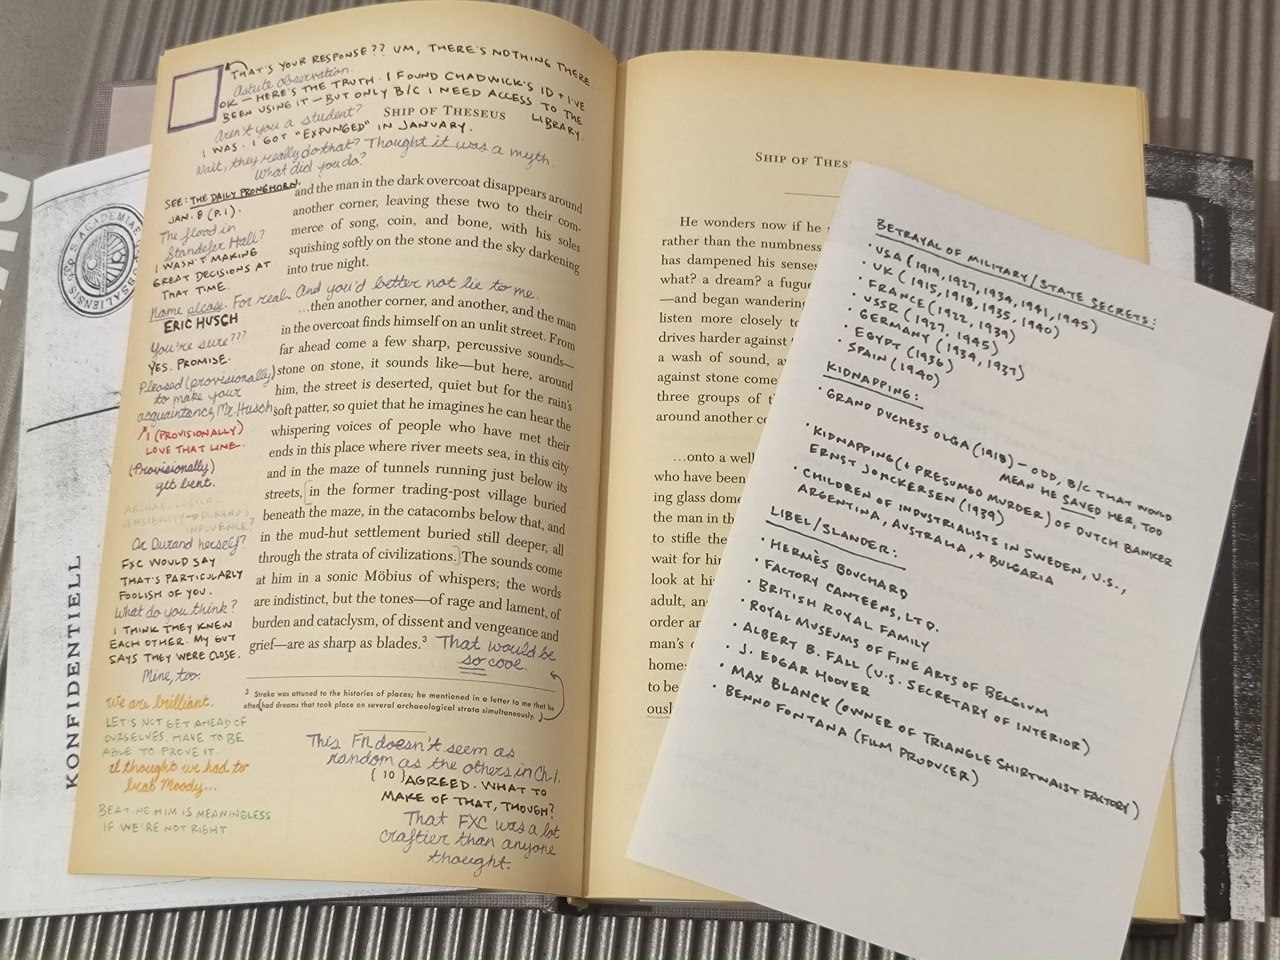 THAT'S YOUR RESPONSE?? UM, THERE'S NOTHING THERE.
Astute observation.
OK — HERE'S THE TRUTH. I FOUND CHADWICK'S ID + I'VE
BEEN USING IT — BUT ONLY B/C I NEED ACCESS TO THE
LIBRARY.
Aren't you a student?
SHIP OF THESEUS
I WAS. I GOT "EXPUNGED" IN JANUARY.
Wait, they really do that? Thought it was a myth.
What did you do?
SEE: THE DAILY PRONGHORN,
JAN. 8 (P. 1).
The flood in
Standefer Hall?
I WASN'T MAKING
GREAT DECISIONS AT
THAT TIME.
Name please. For real. And you'd better not lie to me.
ERIC HUSCH
You're sure???
YES. PROMISE.
Pleased (provisionally)
to make your
acquaintance, Mr. Husch
I (PROVISIONALLY)
LOVE THAT LINE.
(Provisionally)
get bent.
SENSIBILITY → DURAND'S
INFLUENCE?
Or Durand herself?
FXC WOULD SAY
THAT'S PARTICULARLY
FOOLISH OF YOU.
What do you think?
I THINK THEY KNEW
EACH OTHER. MY GUT
SAYS THEY WERE CLOSE.
Mine, too.
We are brilliant.
LET'S NOT GET AHEAD OF
OURSELVES. HAVE TO BE
ABLE TO PROVE IT.
I thought we had to
beat Moody...
BEATING HIM IS MEANINGLESS
IF WE'RE NOT RIGHT.
and the man in the dark overcoat disappears around
another corner, leaving these two to their com-
merce of song, coin, and bone, with his soles
squishing softly on the stone and the sky darkening
into true night.
…then another corner, and another, and the man
in the overcoat finds himself on an unlit street. From
far ahead come a few sharp, percussive sounds—
stone on stone, it sounds like—but here, around
him, the street is deserted, quiet but for the rain's
soft patter, so quiet that he imagines he can hear the
whispering voices of people who have met their
ends in this place where river meets sea, in this city
and in the maze of tunnels running just below its
streets, in the former trading-post village buried
beneath the maze, in the catacombs below that, and
in the mud-hut settlement buried still deeper, all
through the strata of civilizations. The sounds come
at him in a sonic Möbius of whispers; the words
are indistinct, but the tones—of rage and lament, of
burden and cataclysm, of dissent and vengeance and
grief—are as sharp as blades.³
That would be
so cool.
³ Straka was attuned to the histories of places; he mentioned in a letter to me that he
often had dreams that took place on several archaeological strata simultaneously.
This FN doesn't seem as
random as the others in Ch 1.
{ 10 }
AGREED. WHAT TO
MAKE OF THAT, THOUGH?
That FXC was a lot
craftier than anyone
thought.
KONFIDENTIELL
SHIP OF THES
He wonders now if he
rather than the numbness
has dampened his senses
what? a dream? a fugue
—and began wandering
listen more closely to
drives harder against
a wash of sound, a
against stone come
three groups of t
around another co
…onto a well
who have been
ing glass dome
the man in th
to stifle the
wait for him
look at his
adult, an
order a
man's
home
to be
ous
BETRAYAL OF MILITARY/STATE SECRETS:
• USA (1919, 1927, 1934, 1941, 1945)
• UK (1915, 1918, 1935, 1940)
• FRANCE (1922, 1939)
• USSR (1927, 1945)
• GERMANY (1934, 1937)
• EGYPT (1936)
• SPAIN (1940)
KIDNAPPING:
• GRAND DUCHESS OLGA (1918) — ODD, B/C THAT WOULD
MEAN HE SAVED HER, TOO
• KIDNAPPING (+ PRESUMED MURDER) OF DUTCH BANKER
ERNST JONCKERSEN (1939)
• CHILDREN OF INDUSTRIALISTS IN SWEDEN, U.S.,
ARGENTINA, AUSTRALIA, + BULGARIA
LIBEL/SLANDER:
• HERMÈS BOUCHARD
• FACTORY CANTEENS, LTD.
• BRITISH ROYAL FAMILY
• ROYAL MUSEUMS OF FINE ARTS OF BELGIUM
• ALBERT B. FALL (U.S. SECRETARY OF INTERIOR)
• J. EDGAR HOOVER
• MAX BLANCK (OWNER OF TRIANGLE SHIRTWAIST FACTORY)
• BENNO FONTANA (FILM PRODUCER)